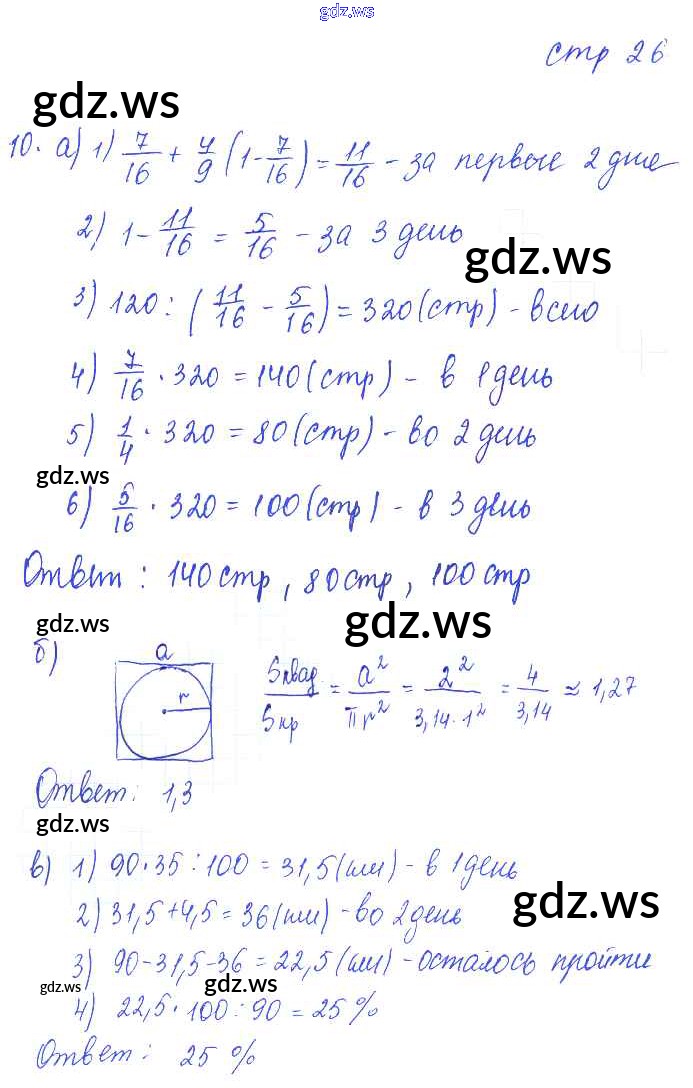 gdz.ws
стр 26
gdz.ws
10. а) 1) 7/16 + 4/9 (1 - 7/16) = 11/16 - за первые 2 дне
2) 1 - 11/16 = 5/16 - за 3 день
gdz.ws
3) 120 : (11/16 - 5/16) = 320 (стр) - всего
4) 7/16 · 320 = 140 (стр) - в 1 день
5) 1/4 · 320 = 80 (стр) - во 2 день
gdz.ws
6) 5/16 · 320 = 100 (стр) - в 3 день
Ответ : 140 стр, 80 стр, 100 стр
gdz.ws
gdz.ws
б)
a
r
Sквад/Sкр = a²/πr² = 2²/3,14·1² = 4/3,14 ≈ 1,27
Ответ: 1,3
gdz.ws
в) 1) 90·35 : 100 = 31,5 (км) - в 1 день
gdz.ws
2) 31,5 + 4,5 = 36 (км) - во 2 день
3) 90 - 31,5 - 36 = 22,5 (км) - осталось пройти
gdz.ws
gdz.ws
4) 22,5 · 100 : 90 = 25 %
Ответ : 25 %